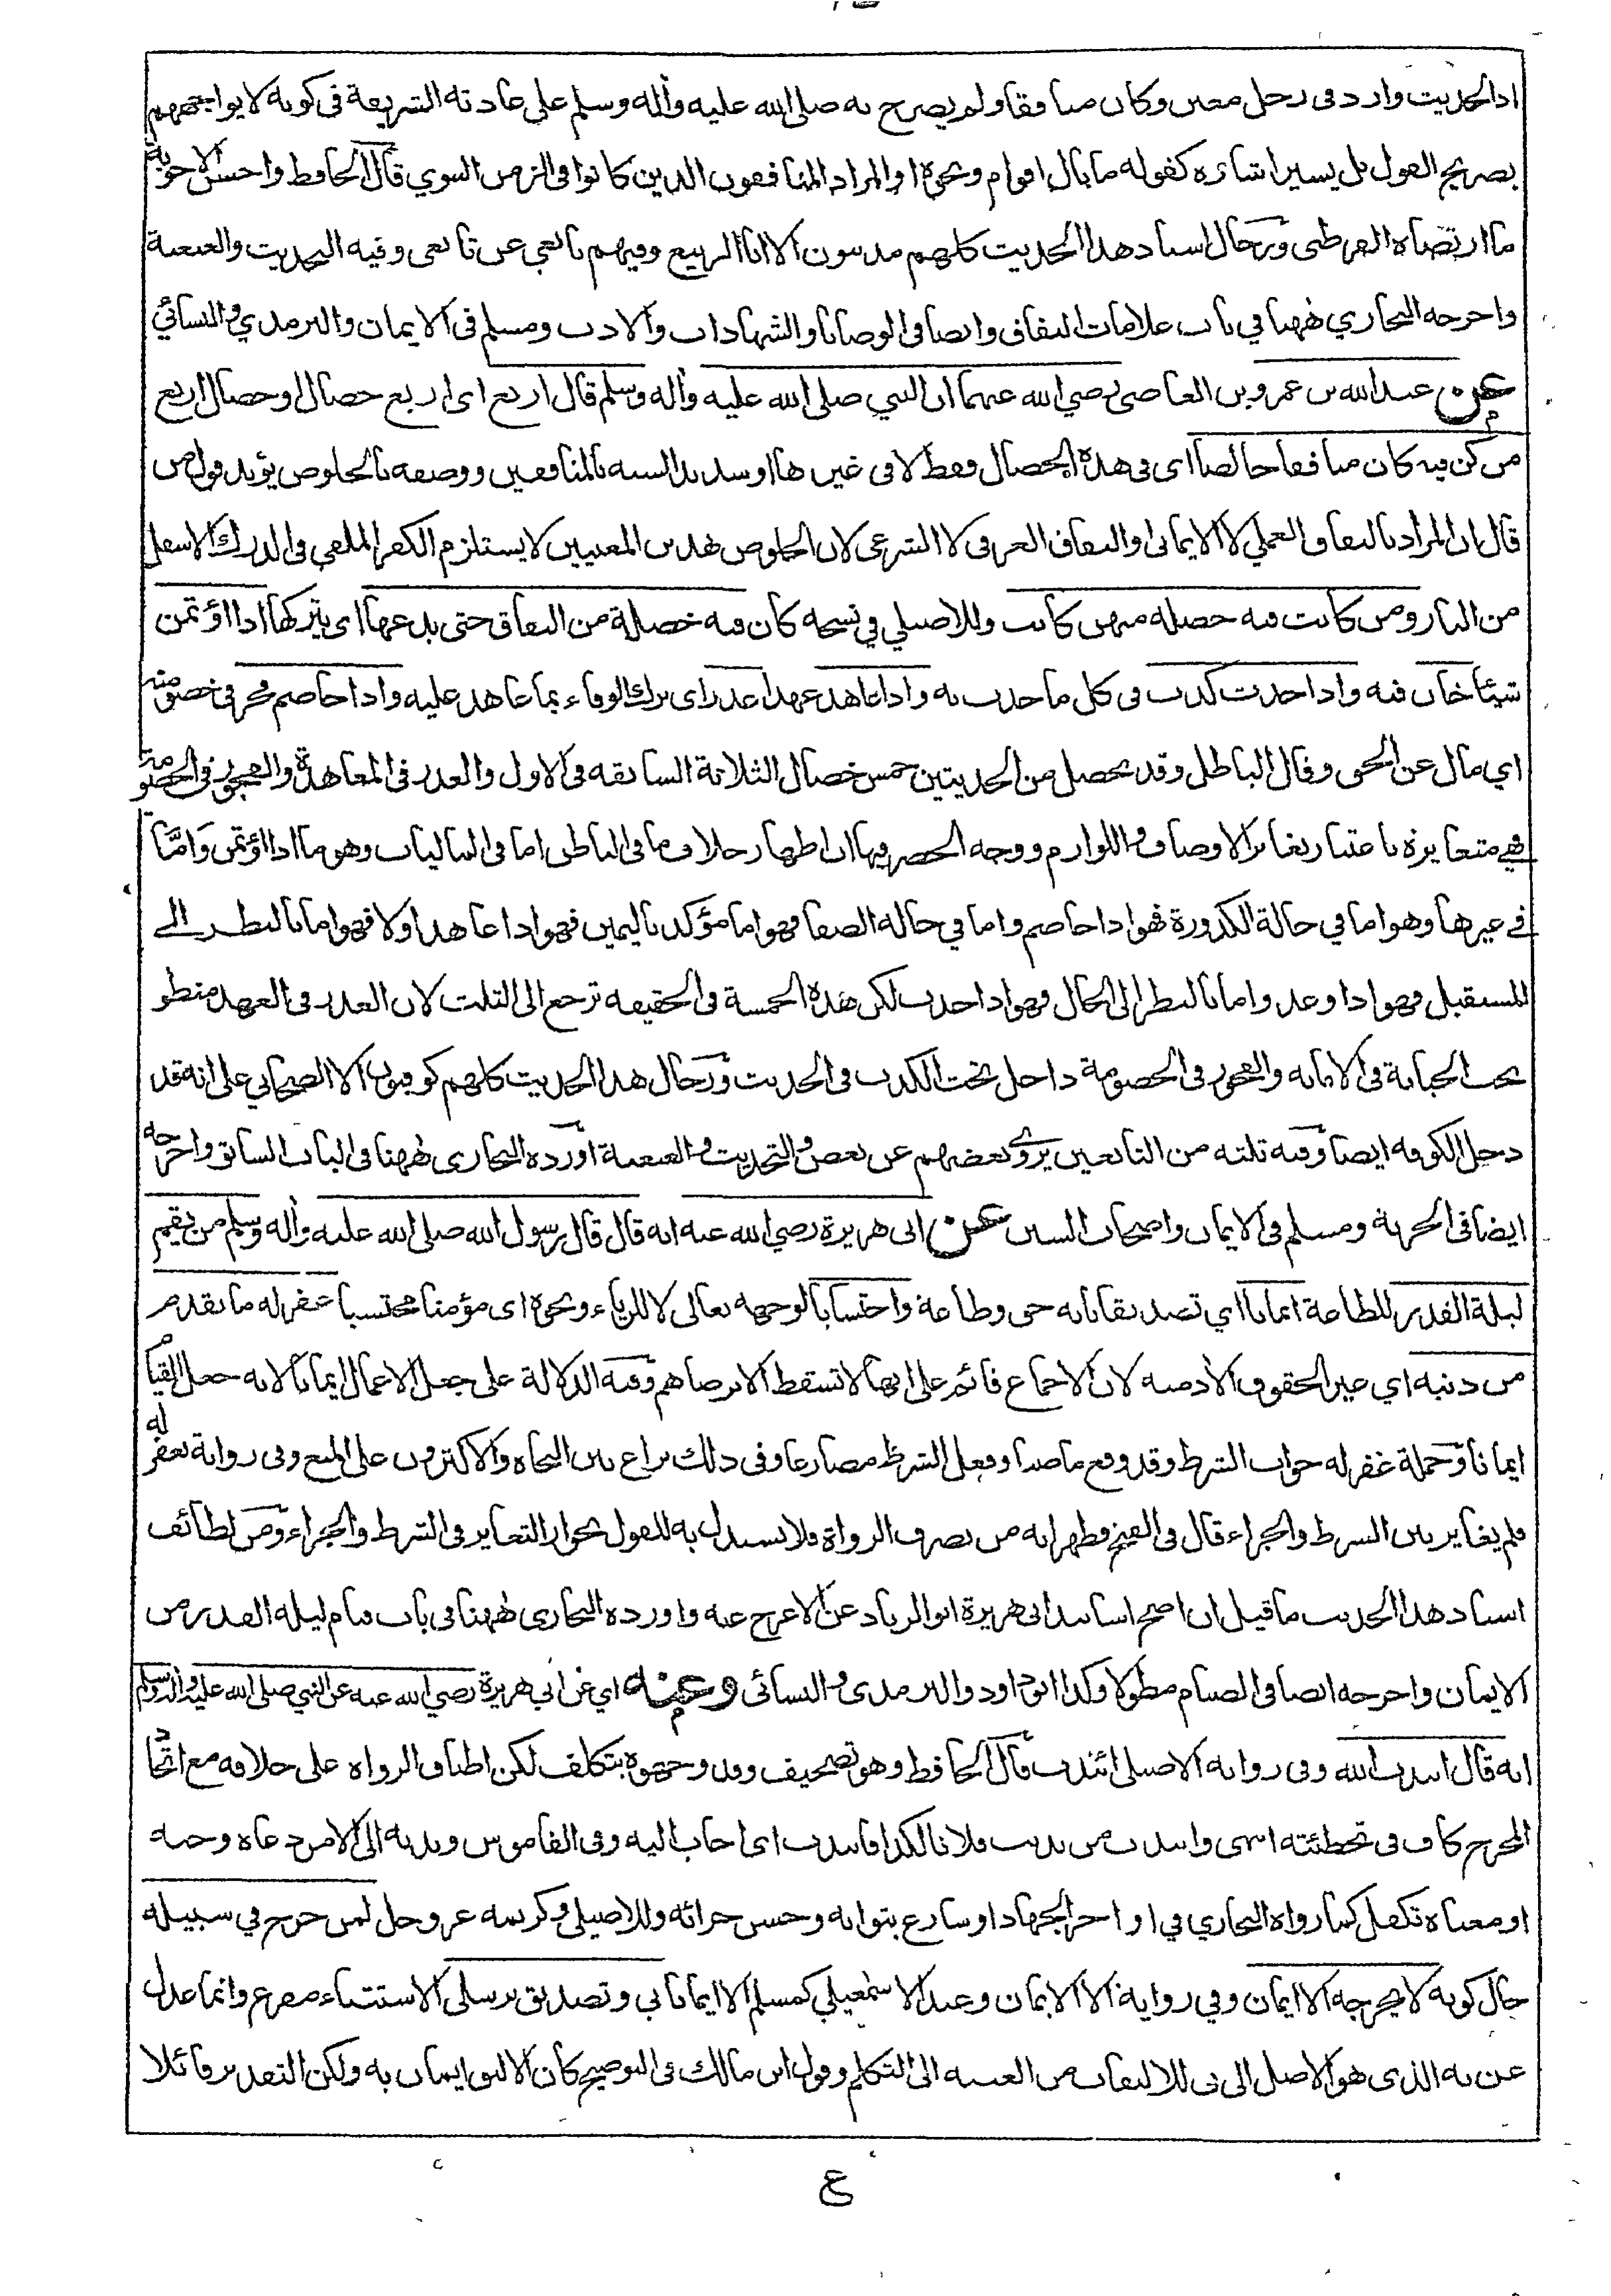 اذ الحديث وارد فى رجل معين وكان منافقا ولم يصرح به صلى الله عليه وأله وسلم على عادته الشريفة فى كونه لا يواجههم
بصريح القول بل يشير اشارة كقوله ما بال اقوام ونحوه او المراد المنافقون الذين كانوا فى الزمن النبوي قال الحافظ واحسن الاجوبة
ما ارتضاه القرطبى ورجال اسناد هذا الحديث كلهم مدنيون الا ابا الربيع وفيهم تابعي عن تابعى وفيه التحديث والعنعنة
واخرجه البخاري ههنا في باب علامات النفاق وايضا فى الوصايا والشهادات والادب ومسلم فى الايمان والترمذي والنسائي
عن عبد الله بن عمرو بن العاصى رضي الله عنهما ان النبي صلى الله عليه وأله وسلم قال اربع اى اربع خصال او خصال اربع
من كن فيه كان منافقا خالصا اى فى هذه الخصال فقط لا فى غيرها او شديد الشبه بالمنافقين ووصفه بالخلوص يؤيد قول من
قال ان المراد بالنفاق العملي لا الايمانى او النفاق العرفى لا الشرعى لان الخلوص بهذين المعنيين لا يستلزم الكفر الملقى فى الدرك الاسفل
من النار ومن كانت فيه خصلة منهن كانت وللاصيلي في نسخة كان فيه خصلة من النفاق حتى يدعها اى يتركها اذا اؤتمن
شيئا خان فيه واذا حدث كذب فى كل ما حدث به واذا عاهد عهدا غدر اى ترك الوفاء بما عاهد عليه واذا خاصم فجر فى خصومته
اي مال عن الحق وقال الباطل وقد يحصل من الحديثين خمس خصال الثلاثة السابقه فى الاول والغدر فى المعاهدة والفجور فى الخصومة
فهي متغايرة باعتبار تغاير الاوصاف واللوازم ووجه الحصر فيها ان اظهار خلاف ما فى الباطن اما فى الماليات وهو ما اذا اؤتمن وَامّا
في غيرها وهو اما في حالة الكدورة فهو اذا خاصم واما في حالة الصفا فهو اما مؤكد باليمين فهو اذا عاهد او لا فهو اما بالنظر الى
المستقبل فهو اذا وعد واما بالنظر الى الحال فهو اذا حدث لكن هذه الخمسة فى الحقيقه ترجع الى الثلث لان الغدر فى العهد منطو
تحت الخيانة فى الامانه والفجور فى الخصومة داخل تحت الكذب فى الحديث ورجال هذا الحديث كلهم كوفيون الا الصحابي على انه قد
دخل الكوفه ايضا وفيه ثلثه من التابعين يروى بعضهم عن بعض والتحديث والعنعنة اورده البخارى ههنا فى الباب السابق واخرجه
ايضا فى الجزية ومسلم فى الايمان واصحاب السنن عن ابى هريرة رضي الله عنه انه قال قال رسول الله صلى الله عليه وأله وسلم من يقيم
ليلة القدر للطاعة ايمانا اي تصديقا بانه حق وطاعة واحتسابا لوجهه تعالى لا للرياء ونحوه اى مؤمنا محتسبا غفر له ما تقدم
من ذنبه اي غير الحقوق الأدمية لان الاجماع قائم على انها لا تسقط الا برضاهم وفيه الدلالة على جعل الاعمال ايمانا لانه جعل القيام
ايمانا وجملة غفر له جواب الشرط وقد وقع ماضيا وفعل الشرط مضارعا وفى ذلك نزاع بين النحاه والاكثرون على المنع وفى رواية يغفر له
فلم يغاير بين الشرط والجزاء قال فى الفتح فظهر انه من تصرف الرواة فلا يستدل به للقول بجواز التغاير فى الشرط والجزاء ومن لطائف
اسناد هذا الحديث ما قيل ان اصح اسانيد ابى هريرة ابو الزناد عن الاعرج عنه واورده البخارى ههنا فى باب قيام ليلة القدر من
الايمان واخرجه ايضا فى الصيام مطولا وكذا ابو داود والترمذى والنسائى وعنه اي عن ابي هريرة رضي الله عنه عن النبي صلى الله عليه وأله وسلم
انه قال انتدب الله وفى روايه الاصيلى ائتدب قال الحافظ وهو تصحيف وقد وجهوه بتكلف لكن اطباق الرواه على خلافه مع اتحاد
المخرج كاف فى تخطئته انتهى وانتدب من ندبت فلانا لكذا فانتدب اى اجاب اليه وفى القاموس وندبه الى الامر دعاه وحثه
او معناه تكفل كما رواه البخاري في اواخر الجهاد او سارع بثوابه وحسن جزائه وللاصيلي وكريمه عز وجل لمن خرج في سبيله
حال كونه لا يخرجه الا ايمان وفي رواية الا الايمان وعند الاسمعيلي كمسلم الا ايمانا بي وتصديق برسلى الاستثناء مفرغ وانما عدل
عن به الذى هو الاصل الى بى للالتفات من الغيبه الى التكلم وقول ابن مالك فى التوضيح كان الاليق ايمان به ولكن التقدير قائلا
ع